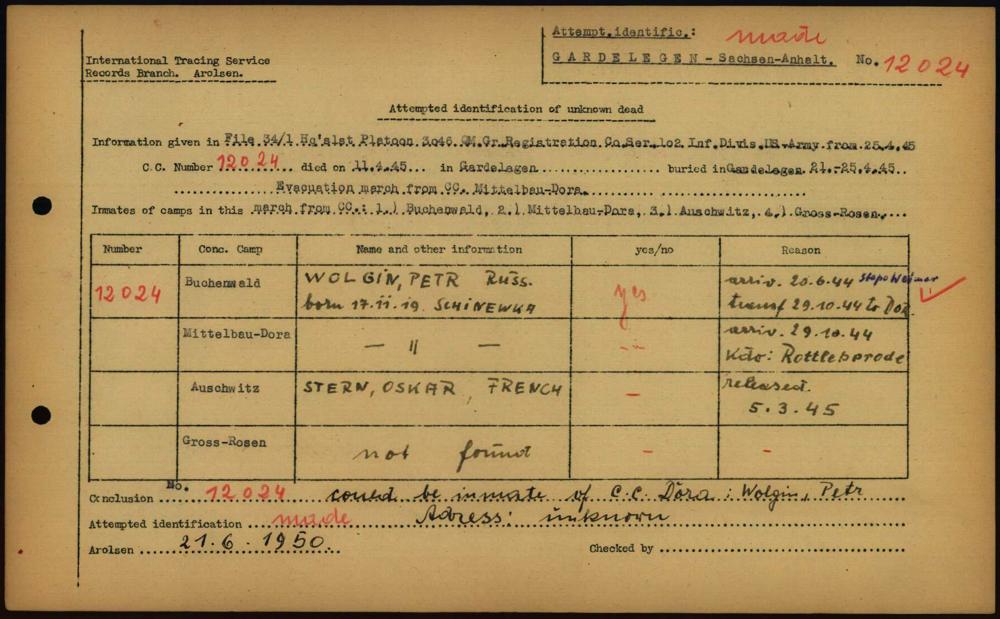 Attempt.identific.: made
International Tracing Service
Records Branch. Arolsen.
GARDELEGEN - Sachsen-Anhalt. No. 12024
Attempted identification of unknown dead
Information given in File 34/1 Hq'alat Platoon 3046 QM.Gr.Registration Co.Ser.102 Inf.Divis.US-Army from 25.4.45
C.C. Number 12024 died on 11.4.45 in Gardelegen buried in Gardelegen 21.-25.4.45
Evacuation march from CC. Mittelbau-Dora.
Inmates of camps in this march from CC.: 1.) Buchenwald, 2.) Mittelbau-Dora, 3.) Auschwitz, 4.) Gross-Rosen.
Number Conc. Camp Name and other information yes/no Reason
12024 Buchenwald WOLGIN, PETR RUSS. yes arriv. 20.6.44 Stapo Weimar
born 17.11.19. SCHINEWKA transf 29.10.44 to Dora
Mittelbau-Dora — " — — " — arriv. 29.10.44
Kdo: Rottleberode
Auschwitz STERN, OSKAR, FRENCH — released.
5.3.45
Gross-Rosen not found — —
Conclusion No. 12024 could be inmate of C.C. Dora: Wolgin, Petr
Attempted identification made Adress: unknown
Arolsen 21.6.1950. Checked by